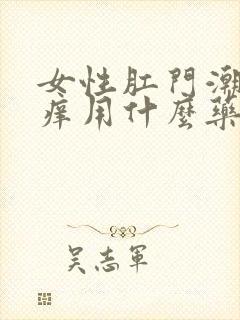 女性肛門潮
痒用什麼藥
吳志軍